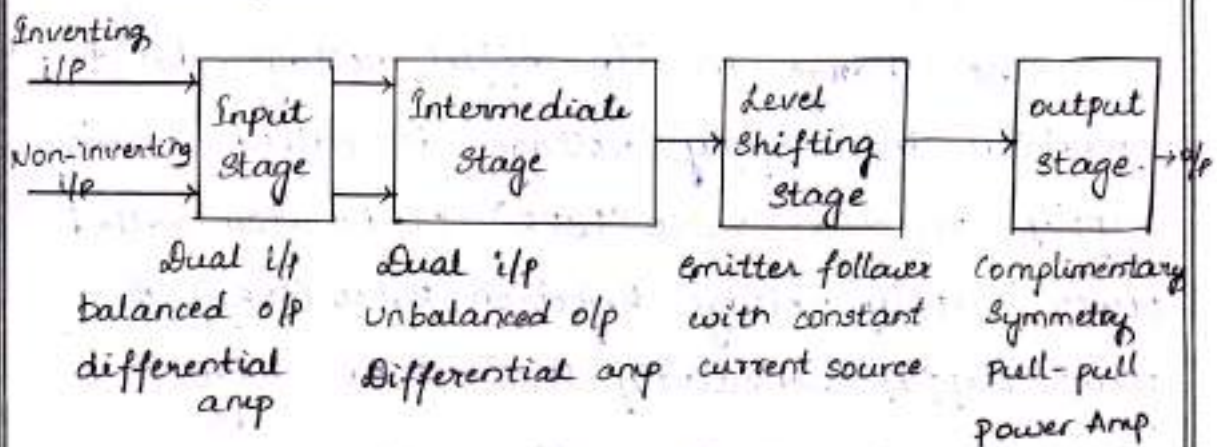 Inverting
i/p
Non-inverting
i/p
Input
Stage
Intermediate
Stage
Level
Shifting
Stage
output
stage.
o/p
Dual i/p
balanced o/p
differential
amp
Dual i/p
unbalanced o/p
Differential amp
emitter follower
with constant
current source.
Complimentary
Symmetry
pull-pull
power Amp